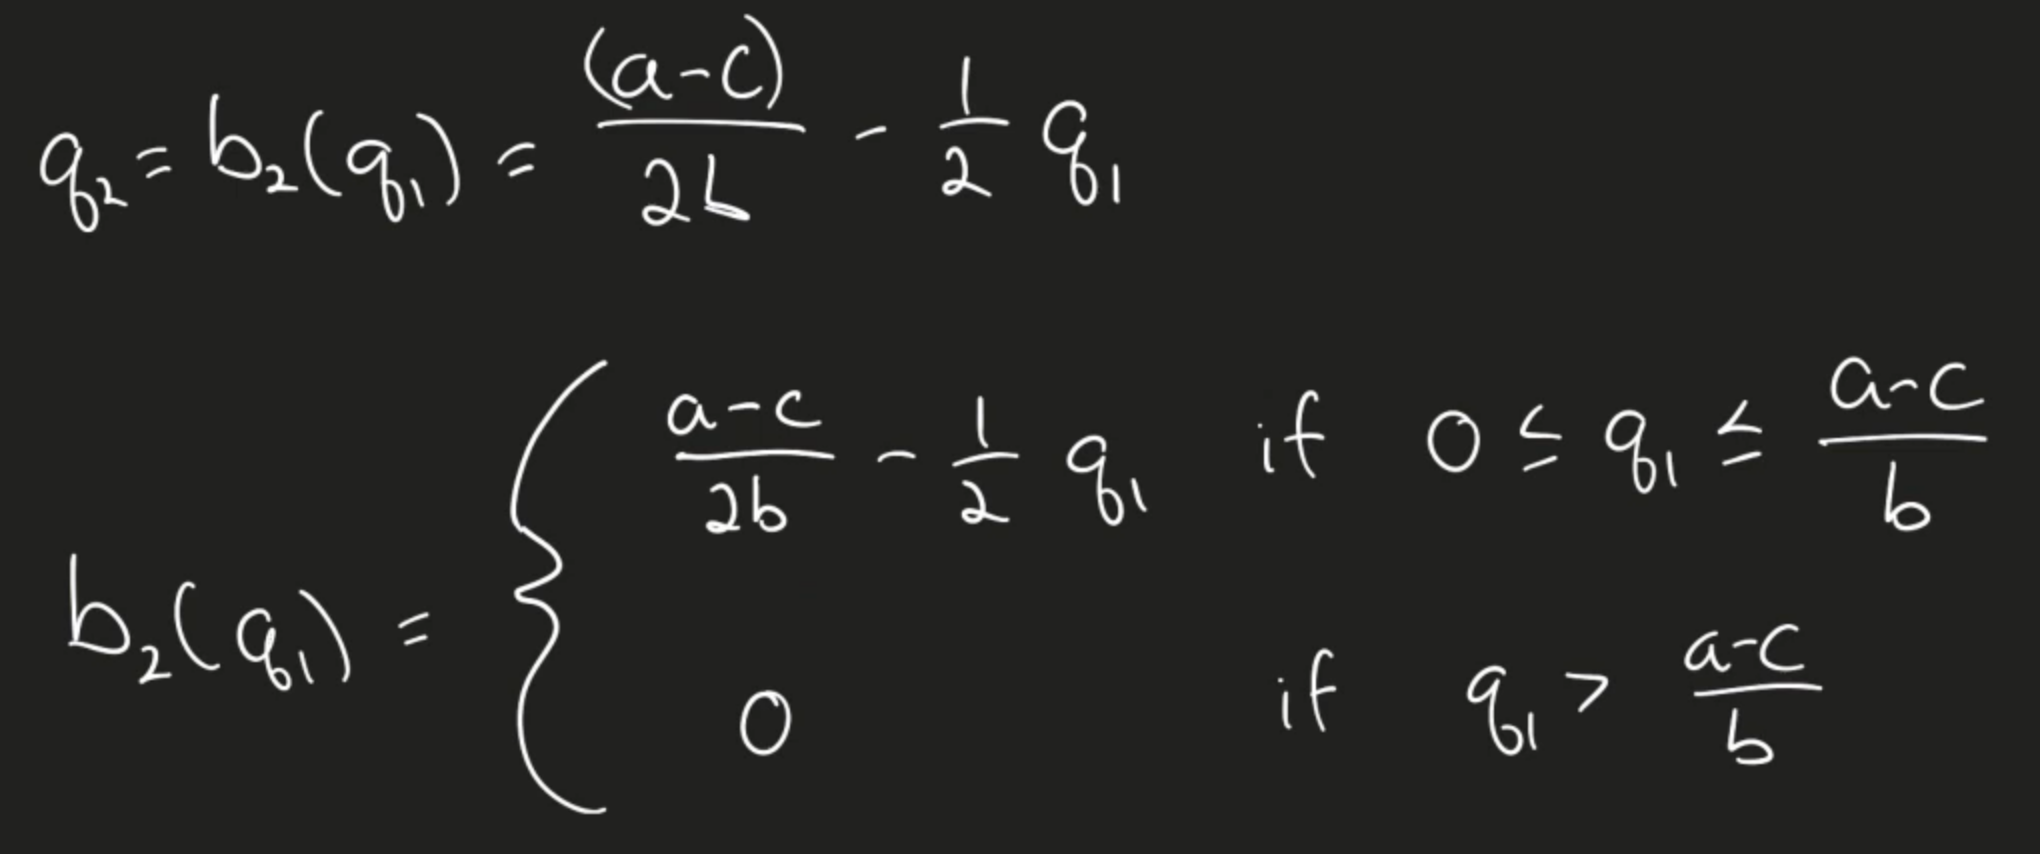 q₂ = b₂(q₁) = (a-c)/2b - 1/2 q₁
b₂(q₁) = { a-c/2b - 1/2 q₁ if 0 ≤ q₁ ≤ a-c/b
0 if q₁ > a-c/b